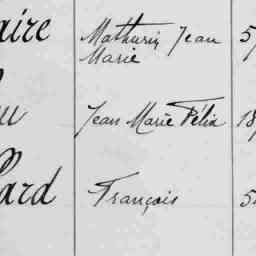 aire Mathurin Jean 5
Marie
u Jean Marie Félix 18
ard François 5